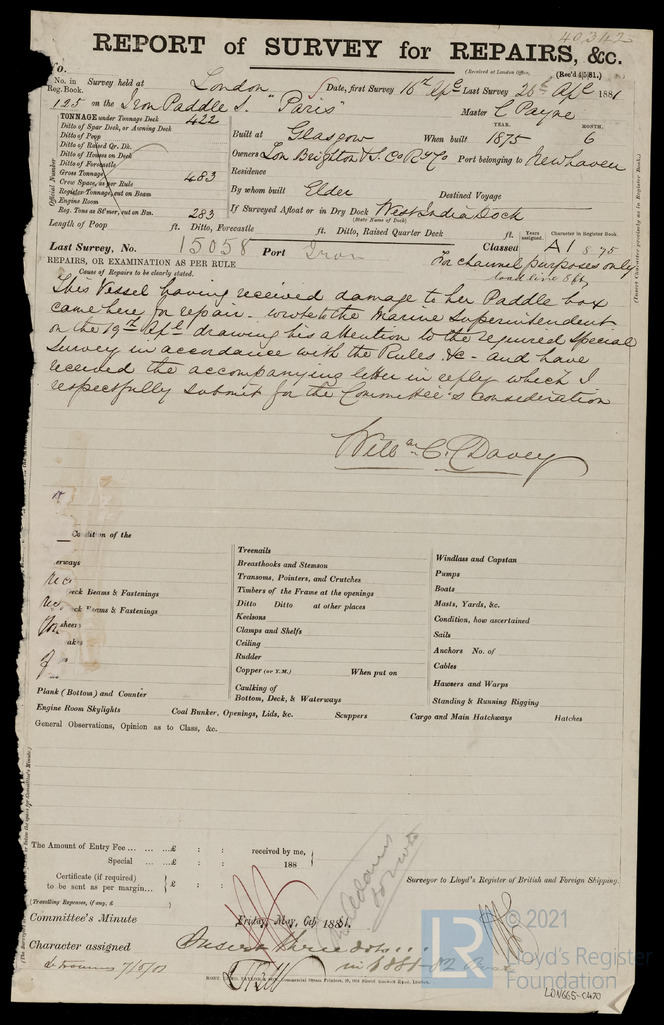 40342
REPORT of SURVEY for REPAIRS, &c.
(Received at London Office,
(Rec'd 4/5/81.)
No. in Reg. Book. Survey held at London Date, first Survey 16th Apl Last Survey 26th Apl 1881
125 on the Iron Paddle S. "Paris" Master C Payne
TONNAGE under Tonnage Deck 422
Ditto of Spar Deck, or Awning Deck
Ditto of Poop
Ditto of Raised Qr. Dk.
Ditto of Houses on Deck
Ditto of Forecastle
Gross Tonnage 483
Crew Space, as per Rule
Register Tonnage, cut on Beam
Engine Room
Reg. Tons as St'mer, cut on Bm. 283
Official Number
YEAR. MONTH.
Built at Glasgow When built 1875 6
Owners Lon Brighton & S. Co Ry Co Port belonging to Newhaven
Residence
By whom built Elder Destined Voyage
If Surveyed Afloat or in Dry Dock West India Dock
(State Name of Dock)
Length of Poop ft. Ditto, Forecastle ft. Ditto, Raised Quarter Deck ft.
Years assigned. Character in Register Book.
Last Survey, No. 15058 Port Iron Classed A1 8.75
For channel purposes only
load line 8 ft
REPAIRS, OR EXAMINATION AS PER RULE
Cause of Repairs to be clearly stated.
This Vessel having received damage to her Paddle box
came here for repair - wrote the Marine Superintendent
on the 19th Apl drawing his attention to the required special
Survey in accordance with the Rules &c - and have
received the accompanying letter in reply which I
respectfully submit for the Committee's consideration
Willm C. Davey
Condition of the
Deck Beams & Fastenings
Deck Beams & Fastenings
Plank (Bottom) and Counter
Treenails
Breasthooks and Stemson
Transoms, Pointers, and Crutches
Timbers of the Frame at the openings
Ditto Ditto at other places
Keelsons
Clamps and Shelfs
Ceiling
Rudder
Copper (or Y.M.) When put on
Caulking of
Bottom, Deck, & Waterways
Windlass and Capstan
Pumps
Boats
Masts, Yards, &c.
Condition, how ascertained
Sails
Anchors No. of
Cables
Hawsers and Warps
Standing & Running Rigging
Engine Room Skylights Coal Bunker, Openings, Lids, &c. Scuppers Cargo and Main Hatchways Hatches
General Observations, Opinion as to Class, &c.
The Amount of Entry Fee ... ... ...£ : : received by me,
Special ... ...£ : : 188
Certificate (if required) to be sent as per margin... £ : :
(Travelling Expenses, if any, £ )
Surveyor to Lloyd's Register of British and Foreign Shipping.
Committee's Minute Friday, May, 6th 1881.
Character assigned Insert three dots...
in 1881-82 Book
7/5/81
© 2021
LR Lloyd's Register
Foundation
LON665-0470